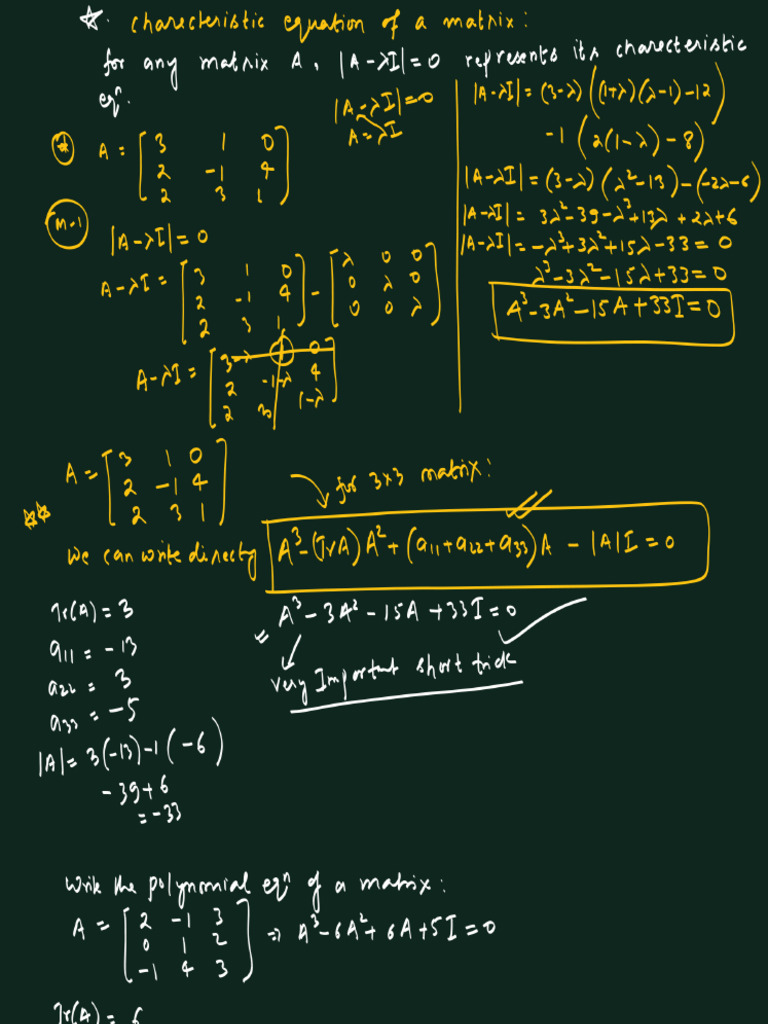 ☆. characteristic equation of a matrix:
for any matrix A, |A-λI|=0 represents its characteristic
eqⁿ.
|A-λI|=0
A=λI
A = [3 1 0
2 -1 4
2 3 1]
M-1
|A-λI|=0
A-λI = [3 1 0
2 -1 4
2 3 1] - [λ 0 0
0 λ 0
0 0 λ]
A-λI = [3-λ 1 0
2 -1-λ 4
2 3 1-λ]
|A-λI| = (3-λ) ((1+λ)(λ-1)-12)
-1 (2(1-λ)-8)
|A-λI| = (3-λ) (λ²-13) - (-2λ-6)
|A-λI| = 3λ²-39-λ³+13λ+2λ+6
|A-λI| = -λ³+3λ²+15λ-33 = 0
λ³-3λ²-15λ+33=0
A³-3A²-15A+33I=0
A = [3 1 0
2 -1 4
2 3 1]
☆☆
for 3x3 matrix:
we can write directly A³-(TrA)A²+(a₁₁+a₂₂+a₃₃)A - |A|I = 0
Tr(A) = 3
a₁₁ = -13
a₂₂ = 3
a₃₃ = -5
|A| = 3(-13)-1(-6)
-39+6
= -33
= A³-3A²-15A+33I=0
very Important short trick
Write the polynomial eqⁿ of a matrix:
A = [2 -1 3
0 1 2
-1 4 3] => A³-6A²+6A+5I=0
Tr(A) = 6